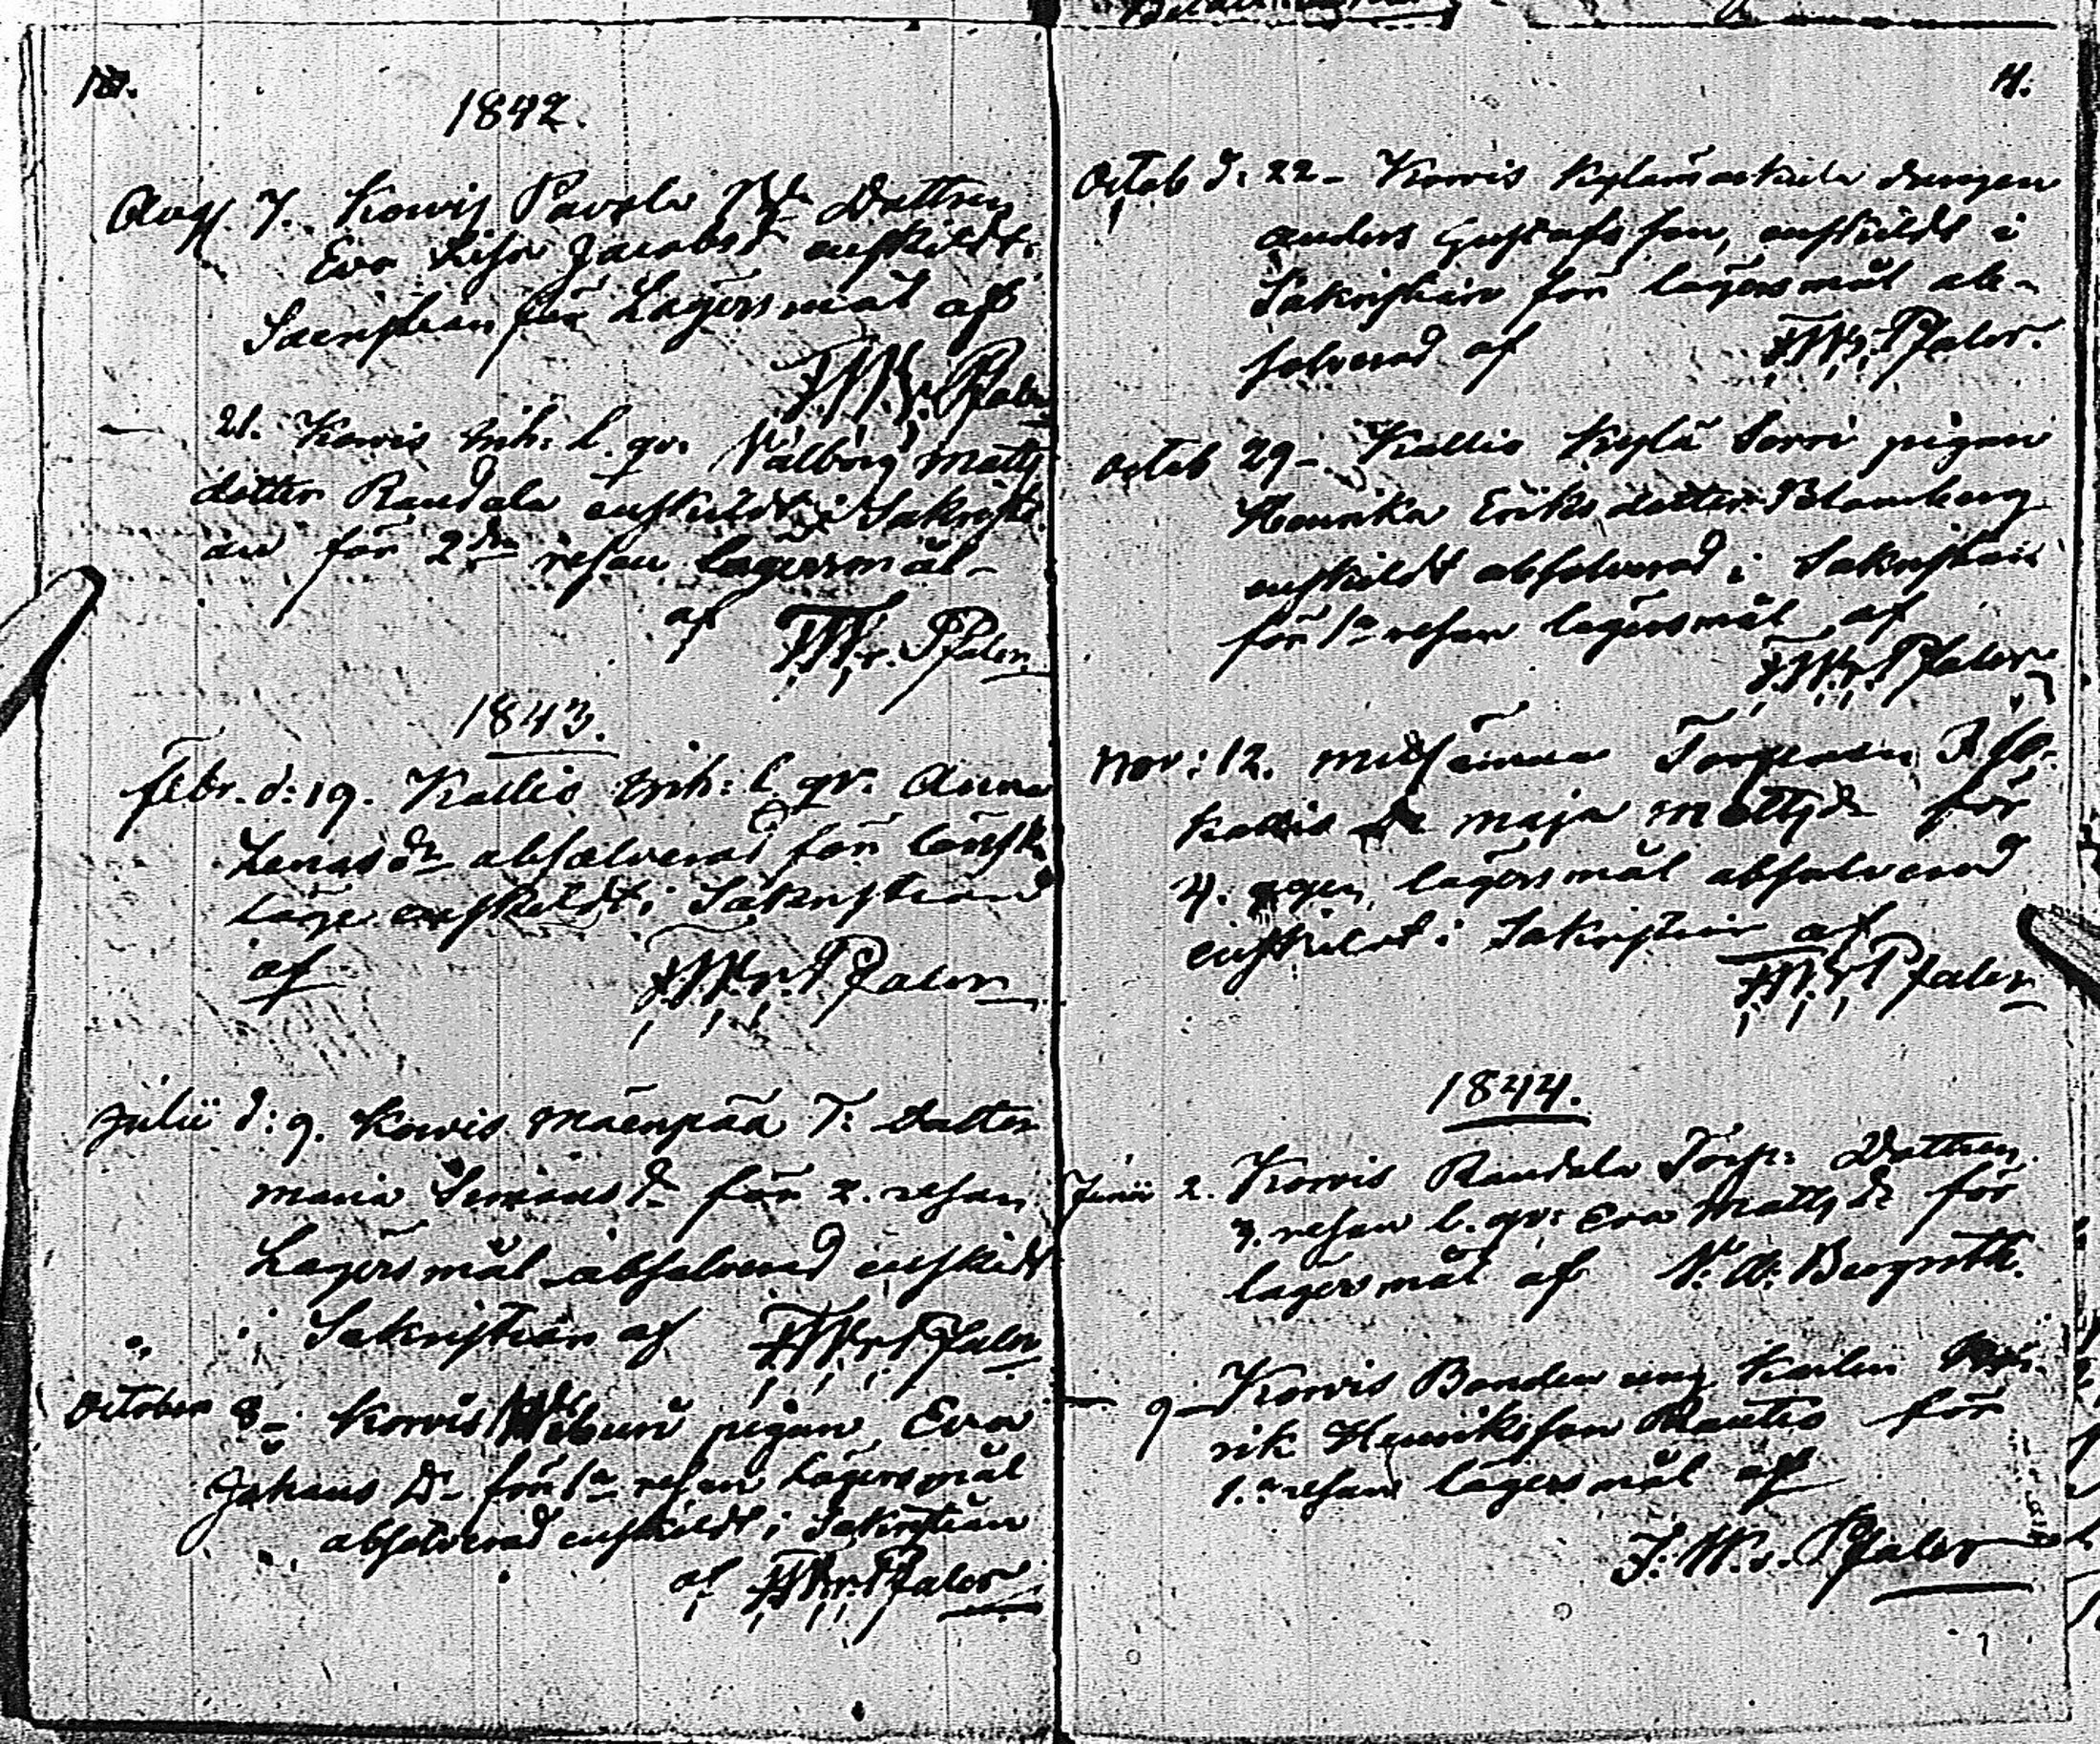 10.
1842.
Aug. 7. Kowis Pavola Dottren
Eva Lisa Jacobsd enskildt
Sacristian för Lägersmål af
F. W. v. Pfaler
21. Kowis Inh: l. qv. Valborg Matts
dotter Raudala enskildt i Sakristi
an för 2dra resan lägersmål
af F. W. v. Pfaler
1843.
Febr. d: 19. Kallis Inh: l. qv. Anna
Lenasdr absolverad för Lönsk
Läge enskildt i Sakristian
af F. W. v. Pfaler
Julii d: 9. Kowis Mäenpää T: dotter
Maria Simonsdr för 2. resan
Lägersmål absolverad enskildt
i Sakristian af F. W. v. Pfaler
October 8 Kowis pigan Eva
Johans Dr för 1a resan Lägersmål
absolverad enskildt i Sakristian
af F. W. v. Pfaler
11.
Octob d: 22 - Kowis drengen
Anders Gustafsson, enskildt i
Sakristian för lägersmål ab-
solverad af F. W. v. Pfaler.
Octob 29 - Kallis Kylä Sorri pigan
Henrika Eriksdotter Blomberg
enskildt absolverad i Sakristian
för 1a resan lägersmål af
F. W. v. Pfaler
Nov: 12. Torparen
Maja Mattsdr för
4. ggen lägersmål absolverad
enskildt i Sakristian af
F. W. v. Pfaler
1844.
Junii 2. Kowis Raudala Torp. Dottren
3. resan l. qv: Eva Mattsdr för
lägersmål af N: A: Bergroth.
— 9 — Kowis Bonden ung Karlen
rik Henriksson Rautio för
1.a resan lägersmål af
F. W. v. Pfaler